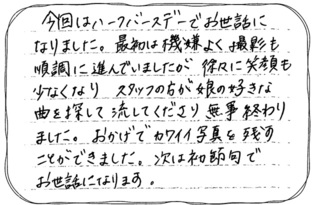 今回はハーフバースデーでお世話に
なりました。最初は機嫌よく撮影も
順調に進んでいましたが 徐々に笑顔も
少なくなり スタッフの方が娘の好きな
曲を探して流してくださり無事終わり
ました。おかげでカワイイ写真を残す
ことができました。次は初節句で
お世話になります。